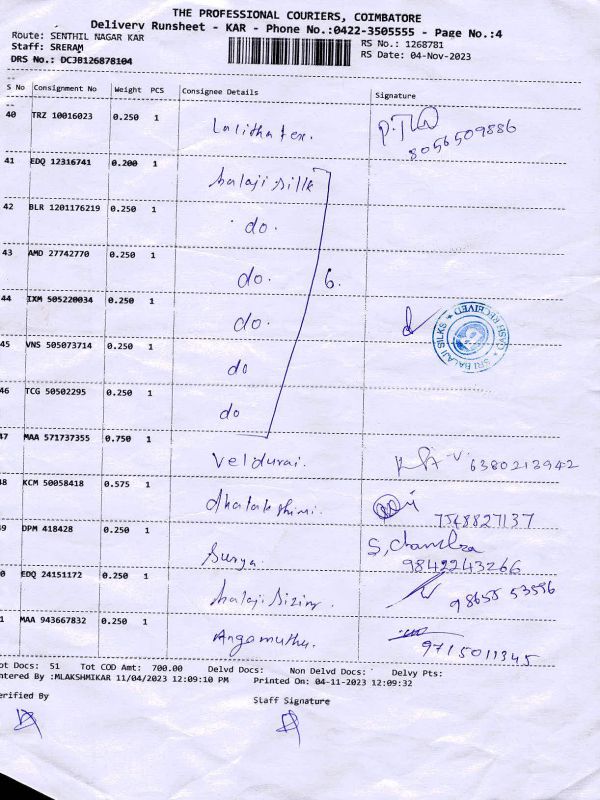 THE PROFESSIONAL COURIERS, COIMBATORE
Delivery Runsheet - KAR - Phone No.:0422-3505555 - Page No.:4
Route: SENTHIL NAGAR KAR
RS No.: 1268781
Staff: SRERAM
RS Date: 04-Nov-2023
DRS No.: DCJB126878104
S No Consignment No Weight PCS Consignee Details Signature
40 TRZ 10016023 0.250 1 Lalitha tex. 8056509886
41 EDQ 12316741 0.200 1 balaji silk
42 BLR 1201176219 0.250 1 do.
43 AMD 27742770 0.250 1 do. 6.
44 IXM 505220034 0.250 1 do.
SRI BALAJI SILKS ★ CASH RECEIVED ★
45 VNS 505073714 0.250 1 do
46 TCG 50502295 0.250 1 do
47 MAA 571737355 0.750 1 Veldurai. 6380213942
48 KCM 50058418 0.575 1 dhalakshimi. 7548827137
49 DPM 418428 0.250 1 Surya. S, Chandra 9842243266
0 EDQ 24151172 0.250 1 balaji Sizing 98655 53596
1 MAA 943667832 0.250 1 Angamuthu. 9715011345
ot Docs: 51 Tot COD Amt: 700.00 Delvd Docs: Non Delvd Docs: Delvy Pts:
ntered By :MLAKSHMIKAR 11/04/2023 12:09:10 PM Printed On: 04-11-2023 12:09:32
erified By Staff Signature